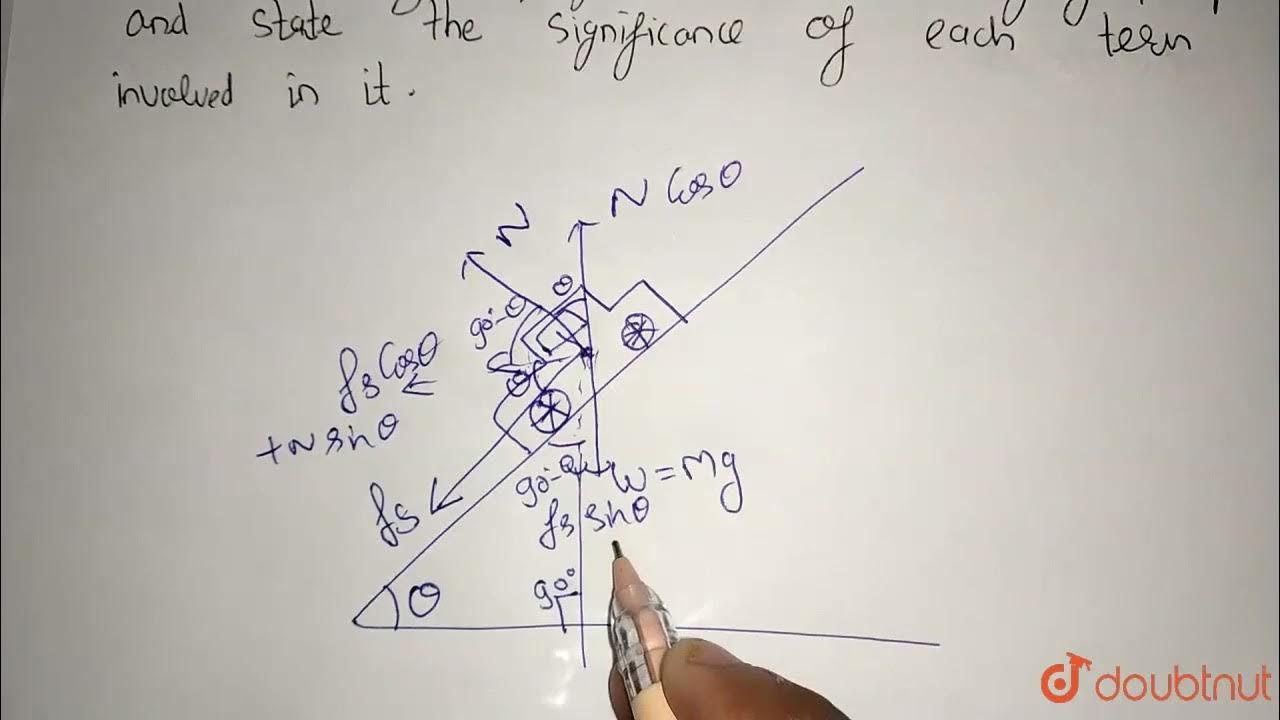 and state the significance of each term
involved in it.
N cosθ
N
θ
90-θ
fs cosθ
+N sinθ
θ
fs
90-θ
W = mg
fs sinθ
90°
θ
doubtnut